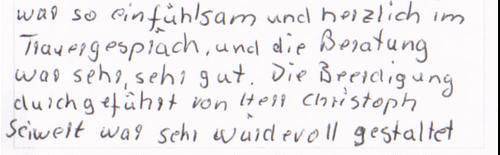 war so einfühlsam und herzlich im
Trauergespräch, und die Beratung
war sehr, sehr gut. Die Beerdigung
durchgeführt von Herr Christoph
Seiweit war sehr würdevoll gestaltet